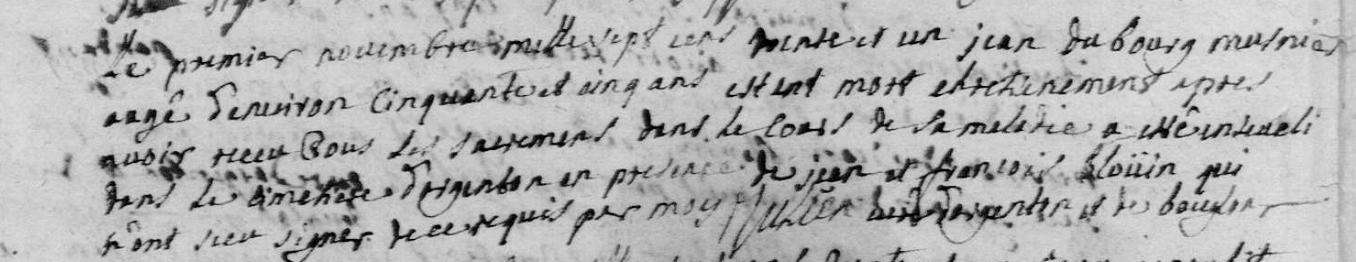 Le premier novembre mille sept cens trente et un jean dubourg musnier
aagê d'environ Cinquante et cinq ans estant mort chretienement apres
avoir receu tous les sacremens dans le Cours de sa maladie a estê enseveli
dans le cimetiere d'argenton en presence de jean et françois Bloüin qui
n'ont sceu signer de ce requis par moy curé d'argenton et de